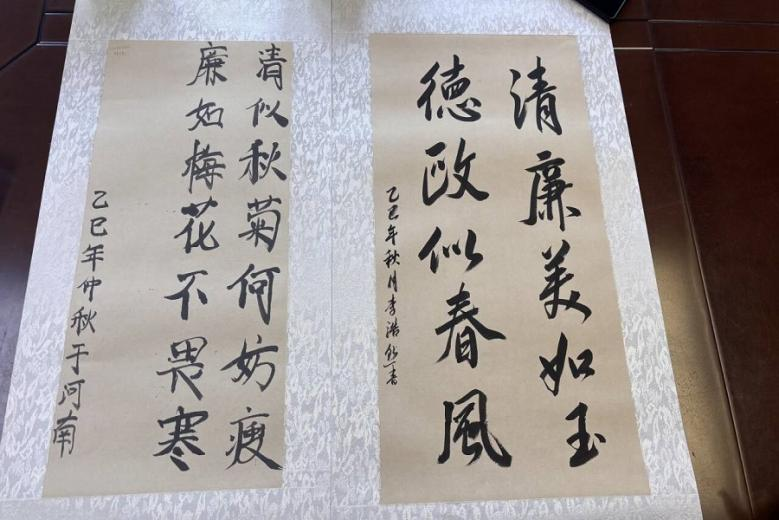 清廉美如玉
德政似春风
乙巳年秋月李浩然書
清似秋菊何妨瘦
廉如梅花不畏寒
乙巳年仲秋于河南